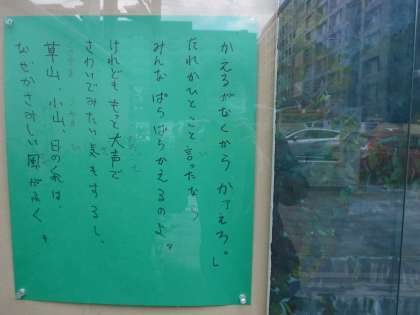 かえるがなくから かァえろ。」
だれかひとこと言ったなら
みんな ばらばらかえるのよ。
けれども もっと大声で
さわいでみたい気もするし、
草山、小山、日の糸は
なぜかさみしい風がふく。